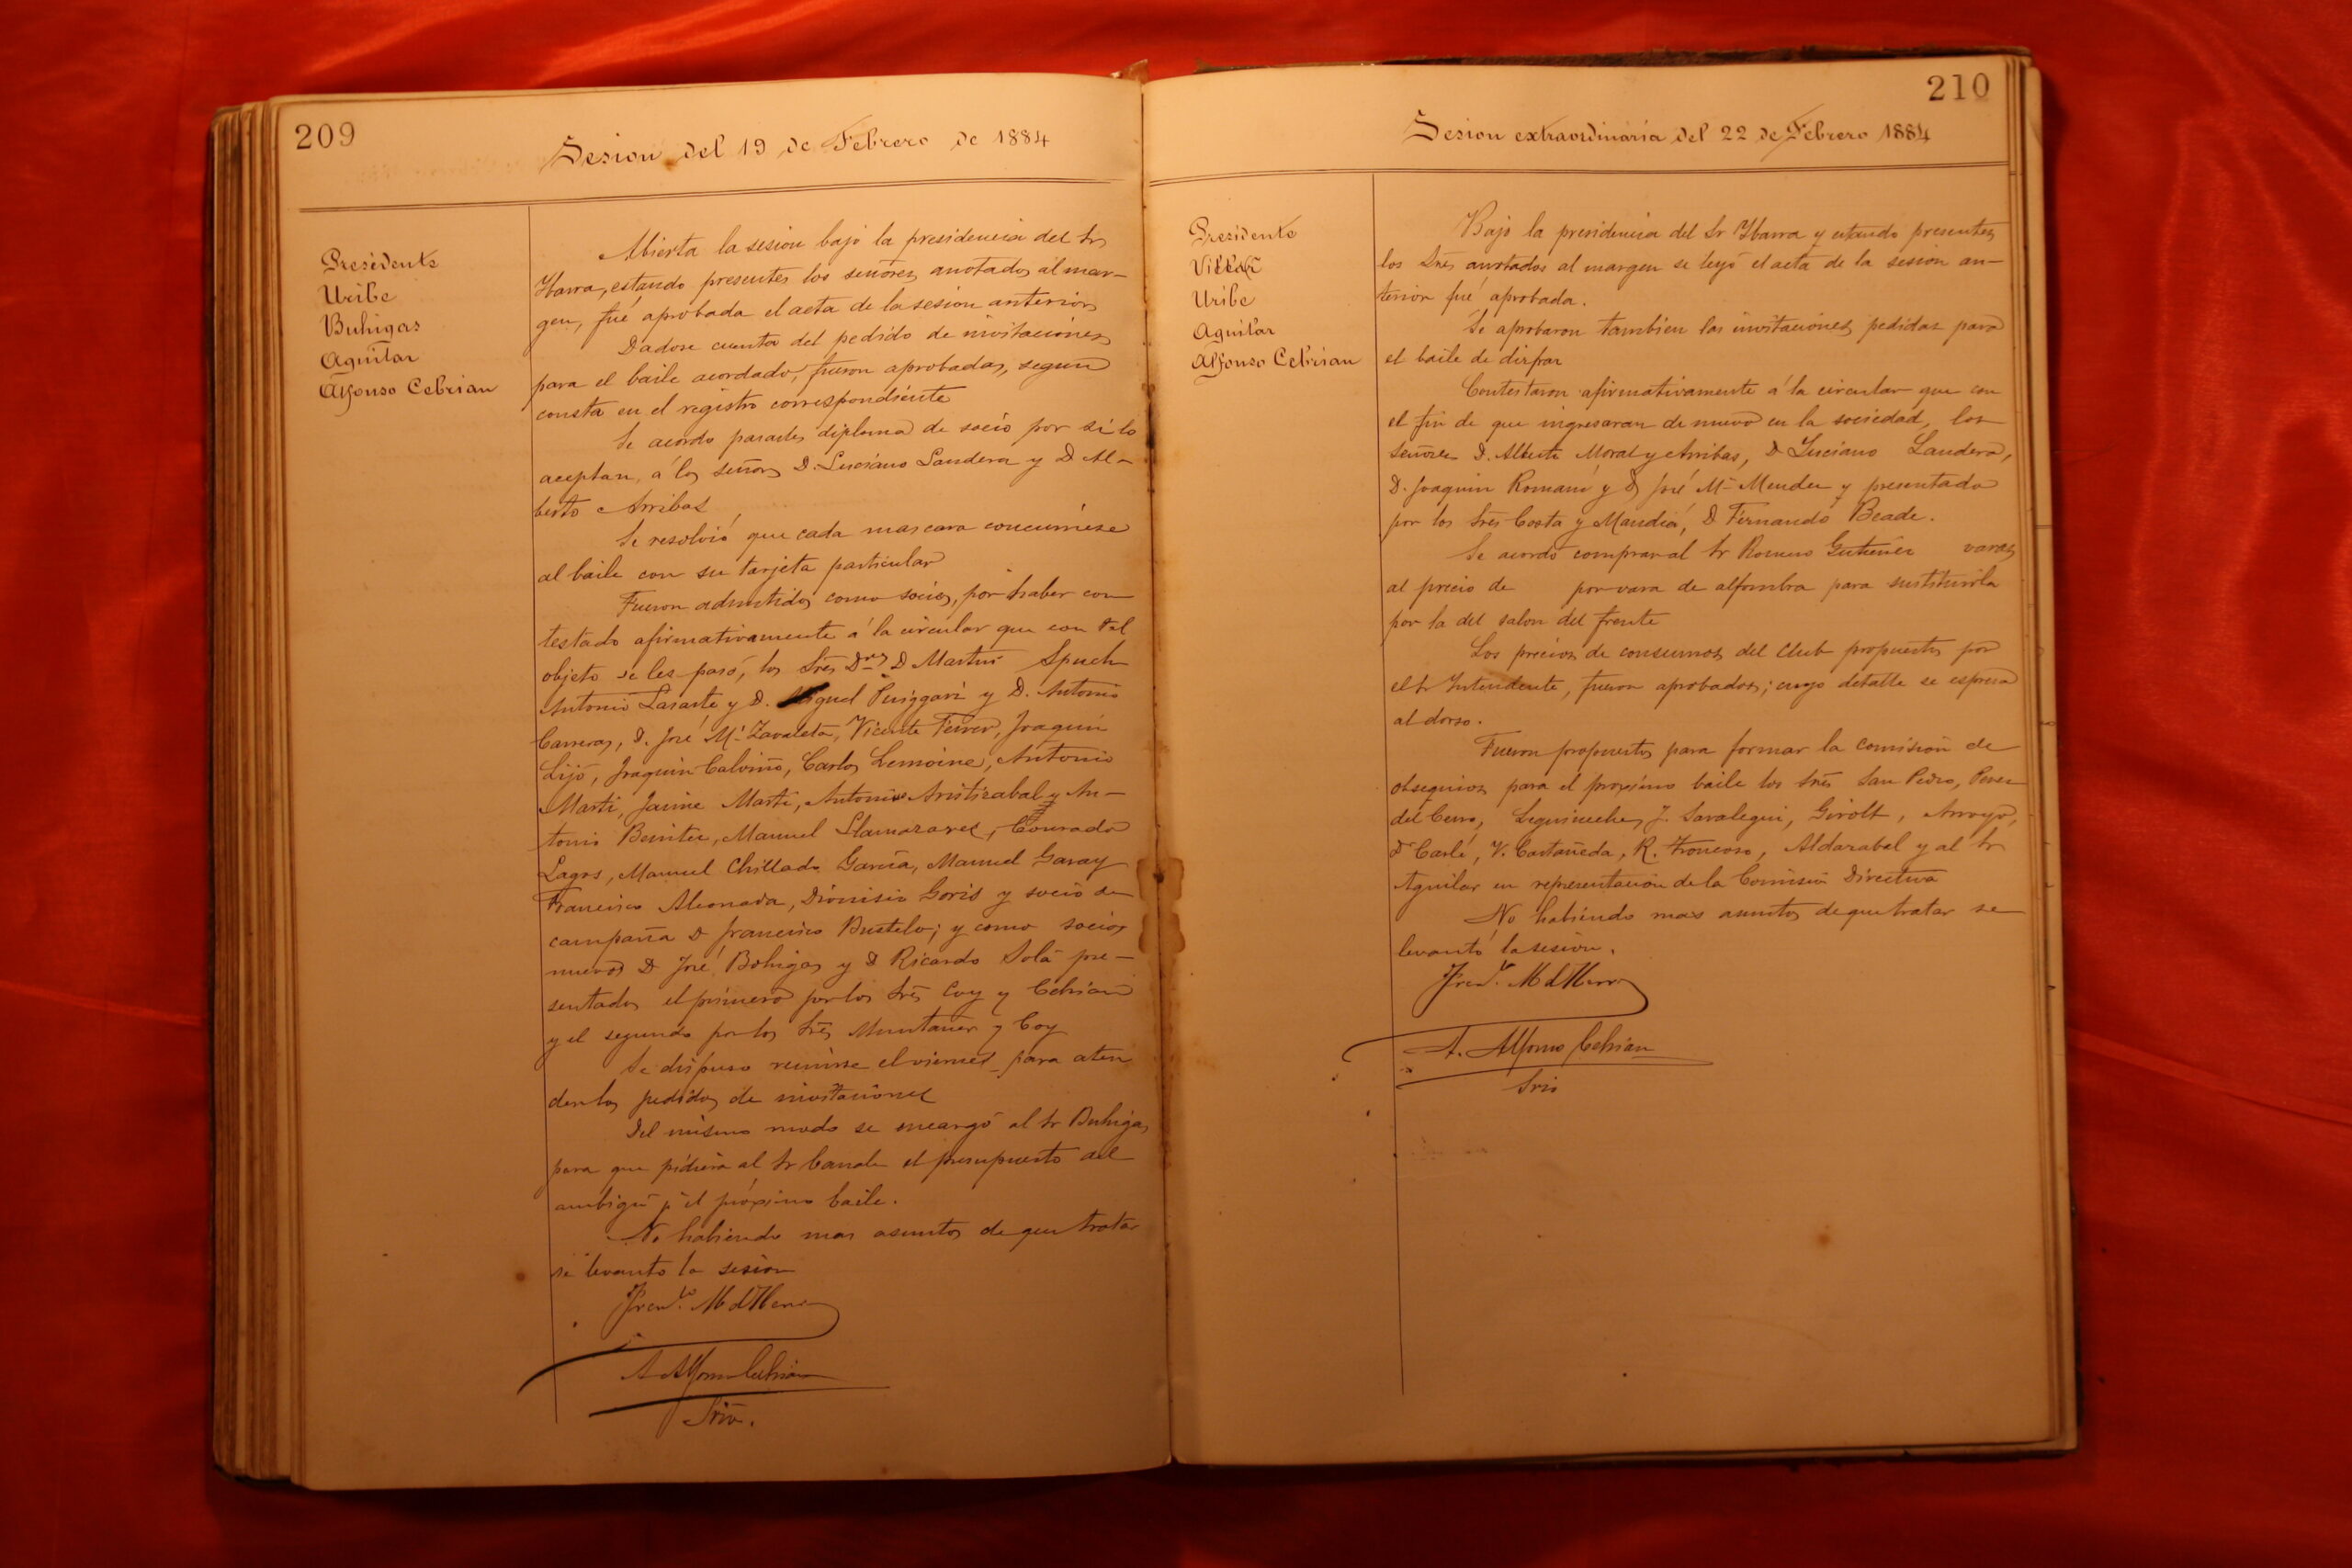 209
Sesion del 19 de Febrero de 1884
Presidente
Uribe
Buhigas
Aguilar
Alfonso Cebrian
Abierta la sesion bajo la presidencia del Sr
Ybarra, estando presentes los señores anotados al mar-
gen, fué aprobada el acta de la sesion anterior
Dadose cuenta del pedido de invitaciones
para el baile acordado, fueron aprobadas, segun
consta en el registro correspondiente
Se acordo pasarles diploma de socio por si lo
aceptan, á los señores D. Luciano Landera y D Al-
berto Arribas
Se resolvió que cada mascara concurriese
al baile con su tarjeta particular
Fueron admitidos como socios, por haber con
testado afirmativamente á la circular que con tal
objeto se les pasó, los Sres Dres D Martin Spuch
Antonio Lasarte y D. Miguel Puiggari y D. Antonio
Carreras, D. José Ma Zavaleta, Vicente Ferrer, Joaquin
Lijó, Joaquin Calviño, Carlos Lemoine, Antonio
Marti, Jaime Marti, Antonio Aristizabal y An-
tonio Benitez, Manuel Llamazares, Conrado
Lagos, Manuel Chillado Garcia, Manuel Garay
Francisco Alconada, Dionisio Goris y socio de
campaña D Francisco Bustelo; y como socios
nuevos D José Bohigas y D Ricardo Solá pre-
sentados el primero por los Sres Coy y Cebrian
y el segundo por los Sres Muntaner y Coy
Se dispuso reunirse el viernes para aten
der los pedidos de invitaciones
Del mismo modo se encargó al Sr Buhigas
para que pidiera al Sr Canale el presupuesto del
ambigú p.a el próximo baile.
No habiendo mas asuntos de que tratar
se levanto la sesion
A. Alfonso Cebrian
Srio.
210
Sesion extraordinaria del 22 de Febrero 1884
Presidente
Villar
Uribe
Aguilar
Alfonso Cebrian
Bajo la presidencia del Sr Ybarra y estando presentes
los Sres anotados al margen se leyó el acta de la sesion an-
terior fué aprobada.
Se aprobaron tambien las invitaciones pedidas para
el baile de disfraz
Contestaron afirmativamente á la circular que con
el fin de que ingresaran de nuevo en la sociedad, los
Señores D. Alberto Moral y Arribas, D Luciano Landera,
D. Joaquin Romani y D José Ma Mendez y presentado
por los Sres Costa y Mandiá, D Fernando Beade.
Se acordó comprar al Sr Romero Gutierrez varas
al precio de por vara de alfombra para sustituirla
por la del salon del frente
Los precios de consumos del Club propuestos por
el Sr Intendente, fueron aprobados; cuyo detalle se espresa
al dorso.
Fueron propuestos para formar la comision de
obsequios para el proximo baile los Sres San Pedro, Perez
del Cerro, J. Saralegui, Girolt, Arroyo,
Dr Carlé, V. Castañeda, R. Troncoso, Aldazabal y al Sr
Aguilar en representacion de la Comision Directiva
No habiendo mas asuntos de que tratar se
levantó la sesion.
A. Alfonso Cebrian
Srio